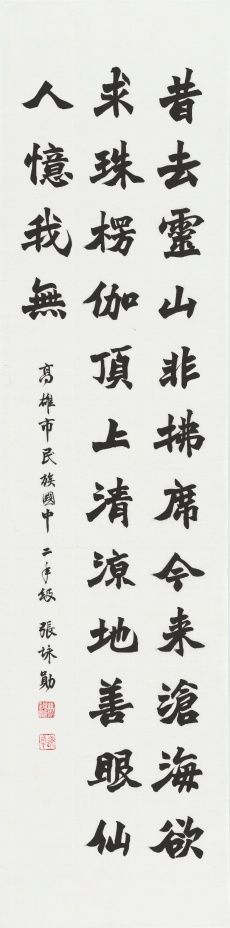 昔去靈山非拂席今来滄海欲
求珠楞伽頂上清涼地善眼仙
人憶我無
高雄市民族國中 二年級 張詠勛